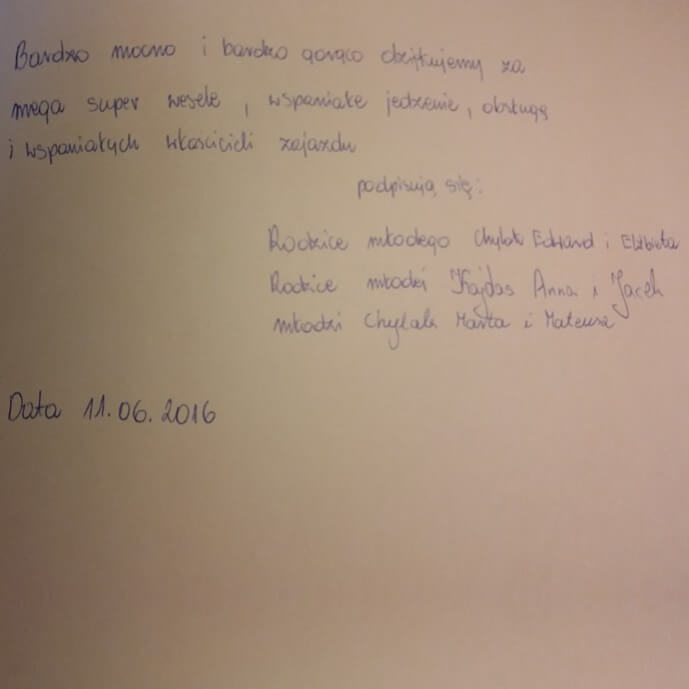 Bardzo mocno i bardzo gorąco dziękujemy za
mega super wesele, wspaniałe jedzenie, obsługę
i wspaniałych właścicieli zajazdu
podpisują się:
Rodzice młodego Chylak Edward i Elżbieta
Rodzice młodej Kajdas Anna i Jacek
młodzi Chylak Marta i Mateusz
Data 11.06.2016